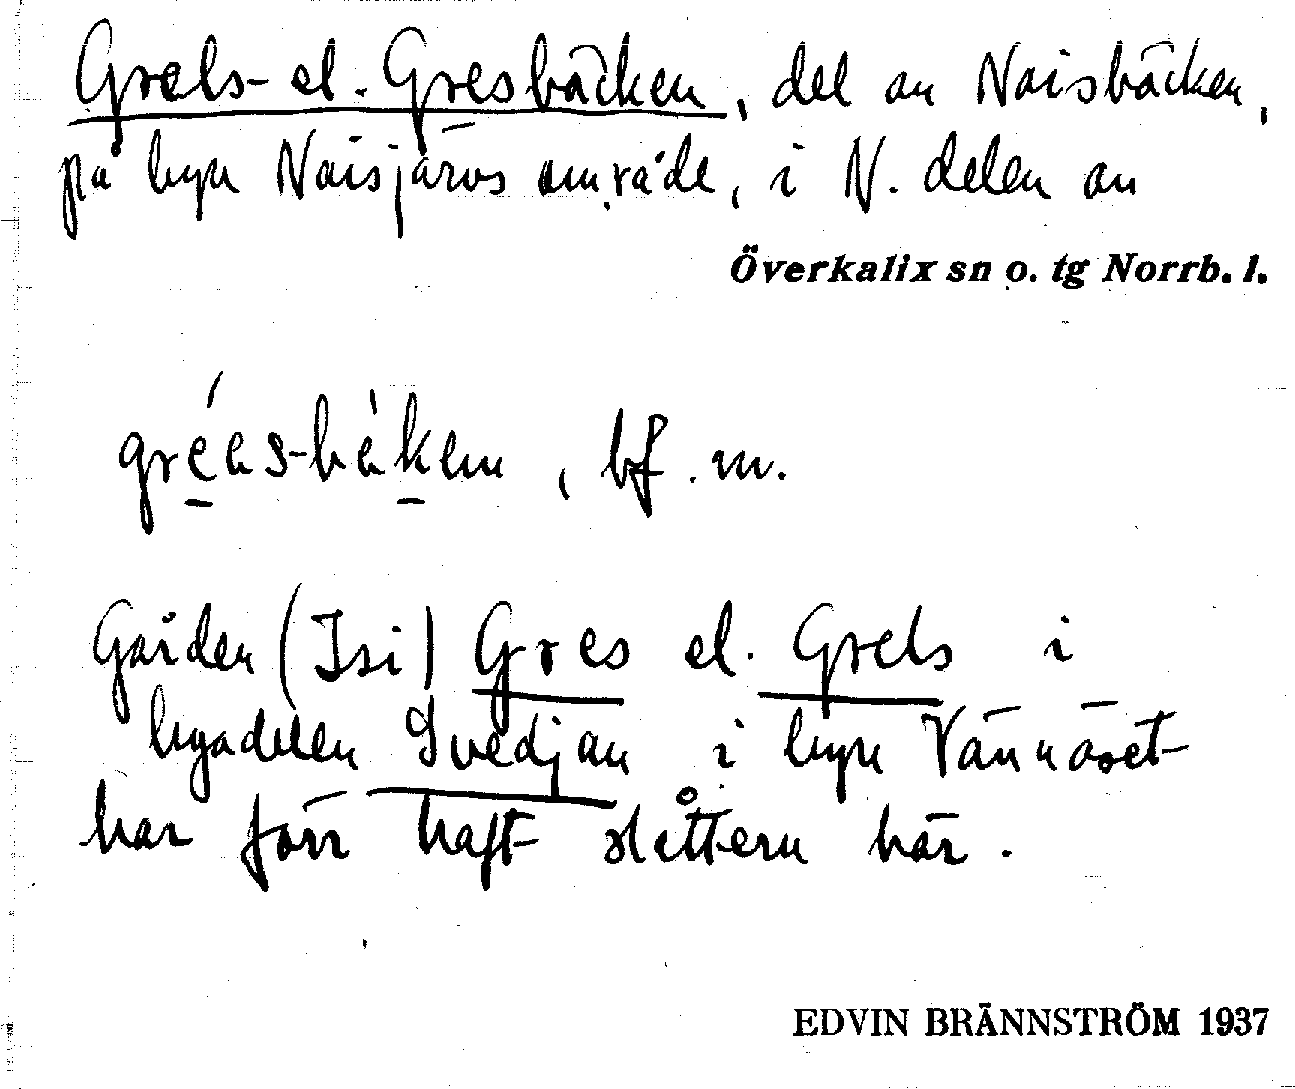 Grels- el. Gresbäcken, del av Naisbäcken,
på byn Naisjärvs område, i N. delen av
Överkalix sn o. tg Norrb. l.
gréas-bàkem, bf. m.
Gården (Isi) Gres el. Grels i
byadelen Svedjan i byn Vännäset
har förr haft slåttern här.
EDVIN BRÄNNSTRÖM 1937